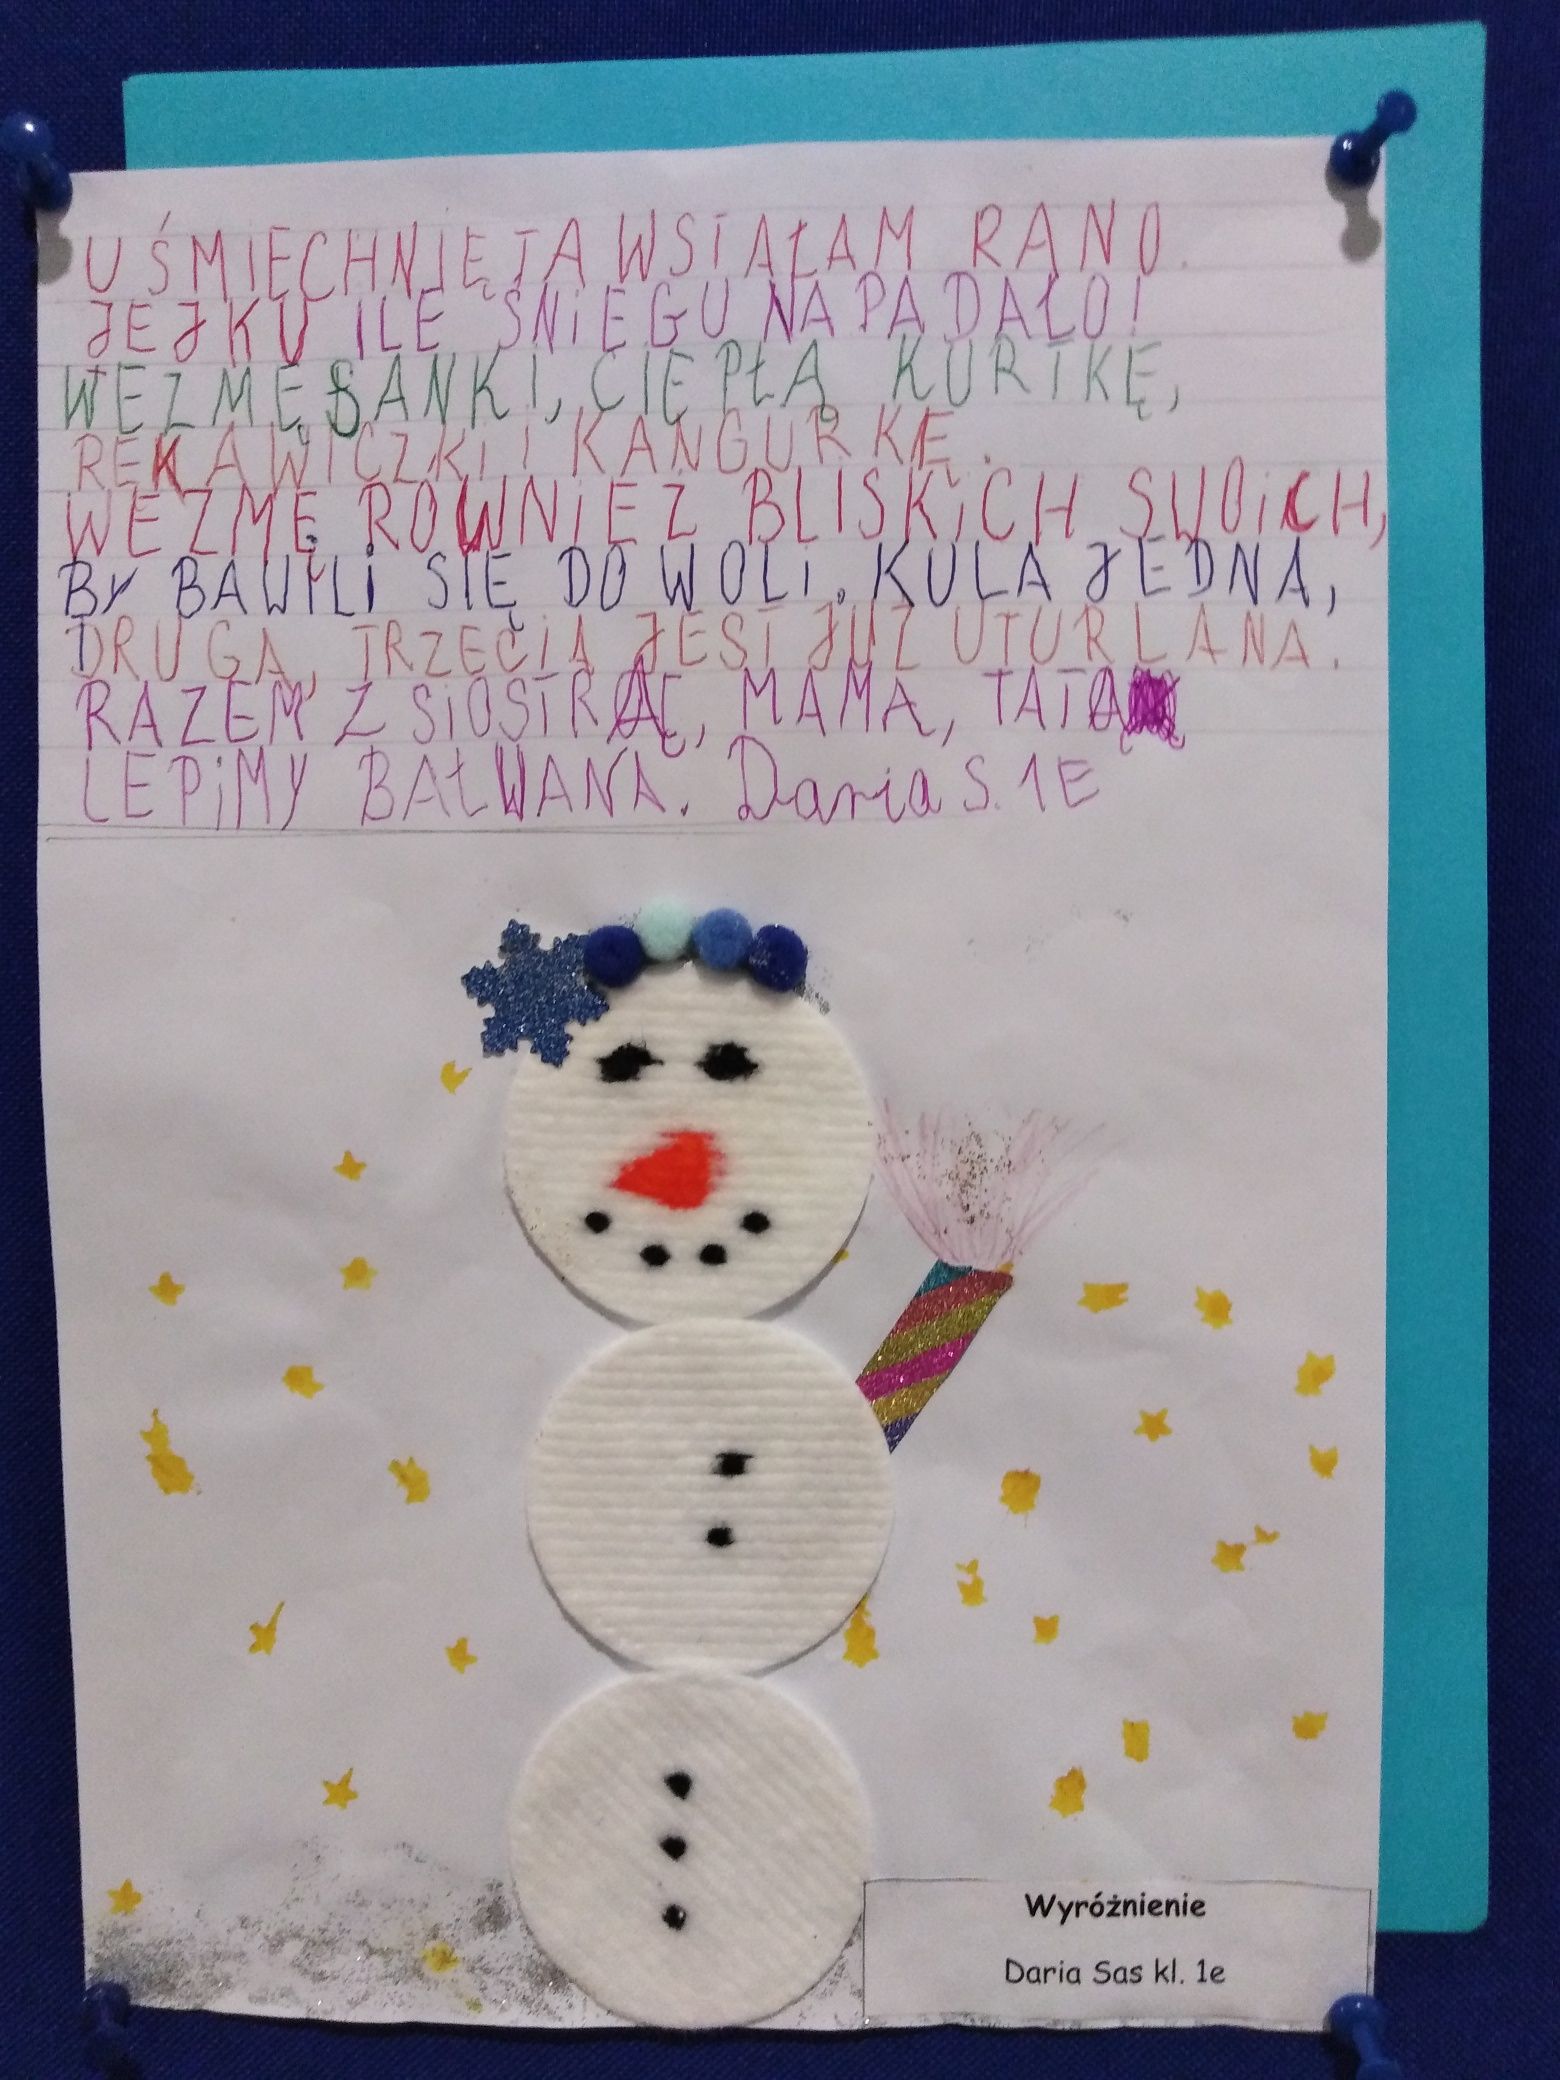 UŚMIĘCHNIĘTA WSTAŁAM RANO.
JEJKU ILE ŚNIEGU NAPADAŁO!
WEZMĘ SANKI, CIEPŁĄ KURTKĘ,
RĘKAWICZKI I KANGURKĘ.
WEZMĘ RÓWNIEŻ BLISKICH SWOICH,
BY BAWILI SIĘ DO WOLI. KULA JEDNA,
DRUGA, TRZECIA JEST JUŻ UTURLANA.
RAZEM Z SIOSTRĄ, MAMĄ, TATĄ
LEPIMY BAŁWANA. Daria S. 1E
Wyróżnienie
Daria Sas kl. 1e